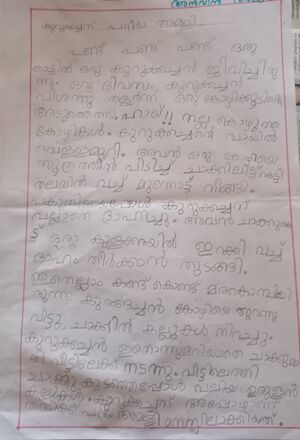 അൻവിൻ
കുറുക്കച്ചന് പറ്റിയ അമളി.
പണ്ട് പണ്ട് പണ്ട് ഒരു
കാട്ടിൽ ഒരു കുറുക്കച്ചൻ ജീവിച്ചിരു
ന്നു. ഒരു ദിവസം, കുറുക്കച്ചൻ
വിശന്നു തളർന്ന് ഒരു കോഴിക്കൂടിന്റെ
അടുത്തെത്തി. ഹായ്!! നല്ല കൊഴുത്ത
കോഴികൾ. കുറുക്കച്ചന്റെ വായിൽ
വെള്ളമൂറി. അവൻ ഒരു കോഴിയെ
സൂത്രത്തിൽ പിടിച്ച് ചാക്കിലിട്ട് കെട്ടി
തലയിൽ വച്ച് മുന്നോട്ട് നീങ്ങി.
കുറുക്കച്ചന്
വല്ലാതെ ദാഹിച്ചു. അവൻ ചാക്കുകെ
ട്ട് ഒരു കുളക്കരയിൽ ഇറക്കി വച്ച്
ദാഹം തീർക്കാൻ തുടങ്ങി.
ഇതെല്ലാം കണ്ട് കൊണ്ട് മരക്കൊമ്പിലി
രുന്ന കുരങ്ങച്ചൻ കോഴിയെ തുറന്നു
വിട്ടു, ചാക്കിൽ കല്ലുകൾ നിറച്ചു.
കുറുക്കച്ചൻ ഇതൊന്നുമറിയാതെ ചാക്കുമാ
യി വീട്ടിലേക്ക് നടന്നു. വീട്ടിലെത്തി
ചാക്കു കുടഞ്ഞപ്പോൾ വലിയ ഉരുളൻ
കല്ലുകൾ. കുറുക്കച്ചന് അപ്പോഴാണ്
തനിക്ക് പറ്റിയ അമളി മനസ്സിലാക്കിയത്.